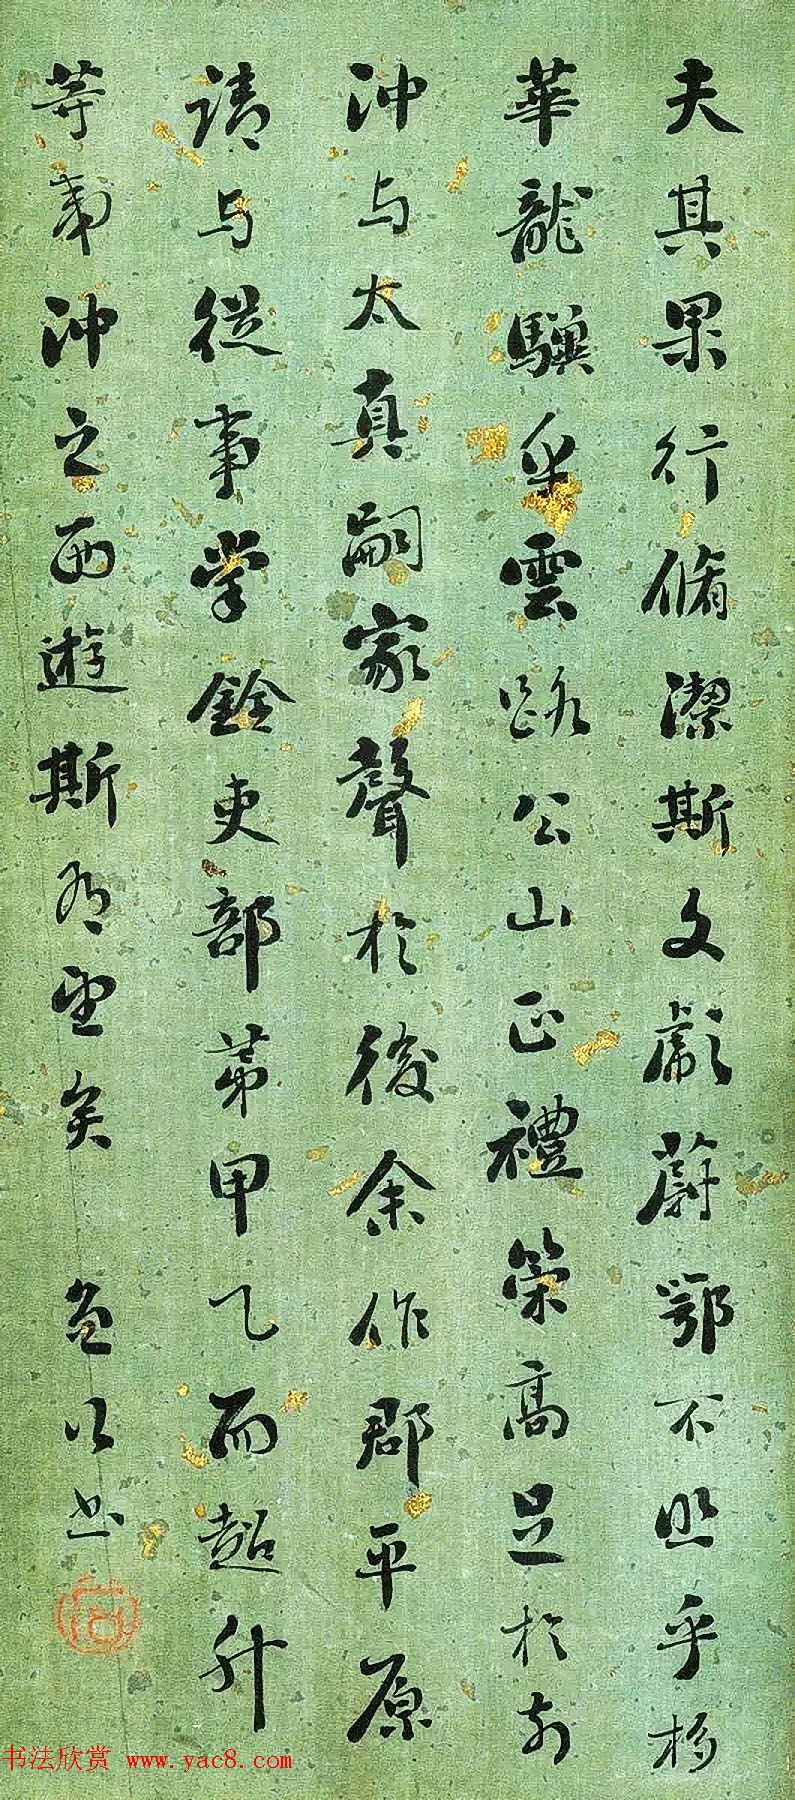 夫其果行脩潔斯文彪蔚鄂不照乎移
華龍驥乎雲路公山正禮策高足於前
沖与太真嗣家聲於後余作郡平原
請与從事掌銓吏部第甲乙而超升
等夷沖之西遊斯有望矣
书法欣赏 www.yac8.com